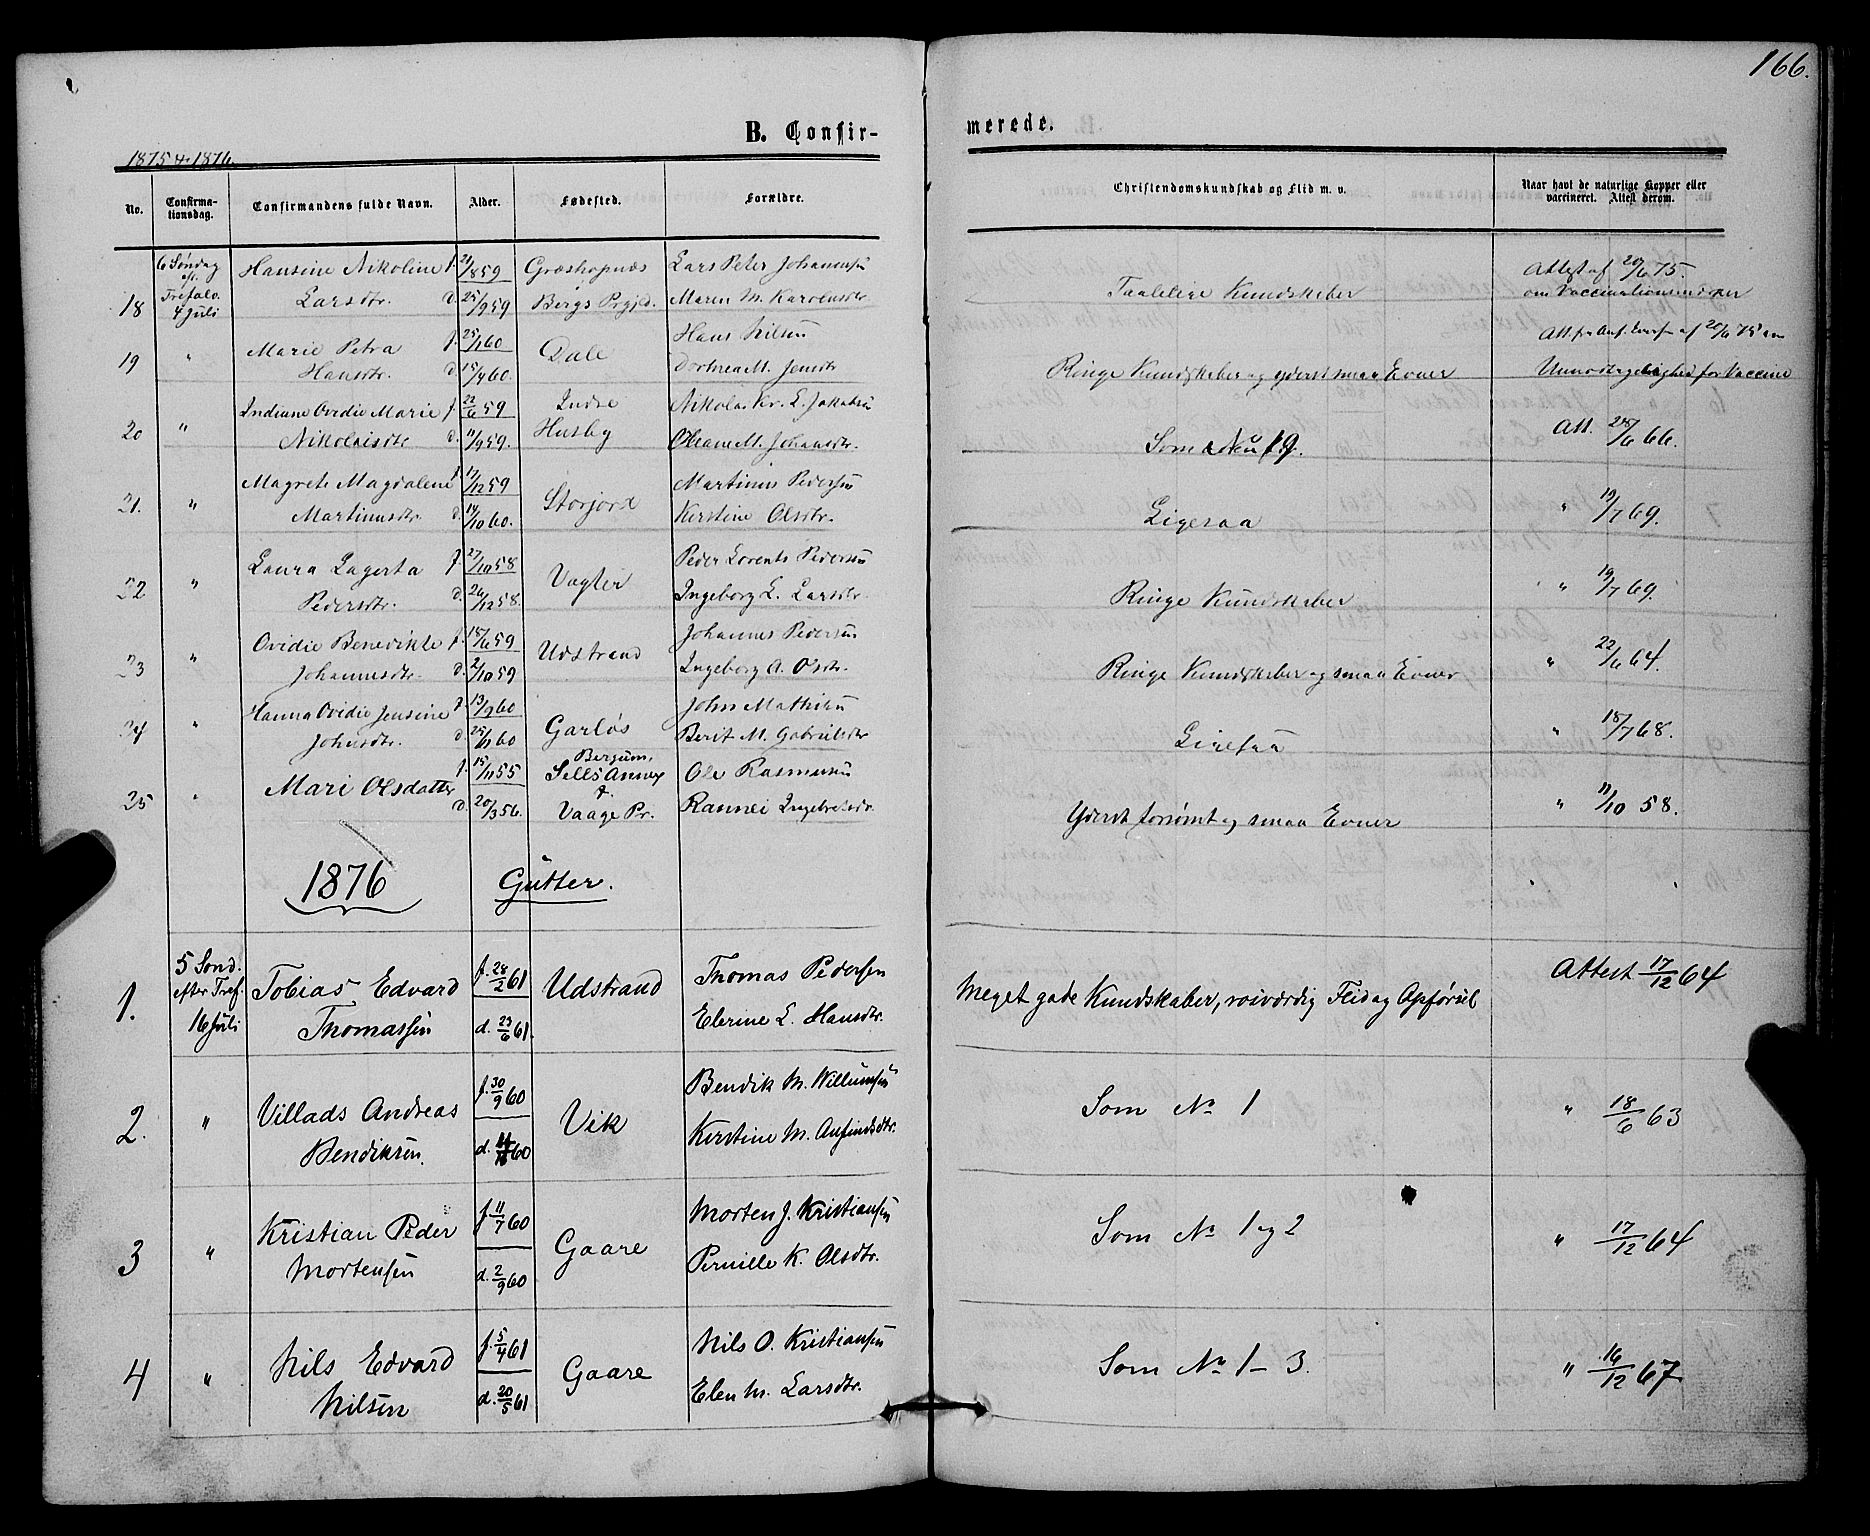 166.
B. Confir-
merede.
1875 & 1876.
No.
Confirma-
tionsdag.
Confirmandens fulde Navn.
Alder.
Fødested.
Forældre.
Christendomskundskab og Flid m. v.
Naar havt de naturlige Kopper eller
vaccineret. Attest derom.
18
6 Søndag
eft.
Trefold.
4 Juli
Hansine Nikoline
Larsdtr.
f. 21/8 59
d. 25/9 59
Græshopnæs
Bergs Prgjld.
Lars Peter Johannesen
Maren M. Karolusdtr.
Taalelige Kundskaber
Attest af 20/6 75.
om Vaccinationsmærker
19
"
Marie Petra
Hansdtr.
f. 25/1 60
d. 15/4 60.
Dale
Hans Nilsen
Dorthea M. Jensdtr
Ringe Kundskaber og yderst smaa Evner
Att. fra 20/6 75 om
Unmodtagelighed for Vaccine
20
"
Indiane Ovidie Marie
Nikolaisdtr
f. 22/6 59
d. 11/9 59.
Indre
Husby
Nikolai Kr. L. Jakobsen
Oleane M. Johansdtr.
Som No 19.
Att. 28/6 66.
21.
"
Magrete Magdalene
Martinusdtr.
f. 17/12 59
d. 14/10 60.
Storjord
Martinus Pedersen
Kerstine Olsdtr.
Ligesaa
" 19/7 69.
22
"
Laura Lagerta
Pedersdtr.
f. 27/10 58
d. 26/12 58.
Vagter
Peder Lorents Pedersen
Ingeborg L. Larsdtr.
Ringe Kundskaber
" 19/7 69.
23
"
Ovidie Benedikte
Johannesdtr.
f. 18/6 59
d. 2/10 59
Udstrand
Johannes Pedersen
Ingeborg A. Olsdtr.
Ringe Kundskaber og smaa Evner
" 22/6 64.
24
"
Hanna Ovidie Jensine
Johnsdtr.
f. 13/9 60
d. 25/11 60
Garløs
John Mathisen
Berit M. Gabrielsdtr
Ligesaa
" 18/7 68.
25
"
Mari Olsdatter
f. 15/11 55
d. 20/3 56.
Bergum,
Sells Annex
t.
Vaage Pr.
Ole Rasmusen
Rannei Ingebretsdr.
Yderst forsømt og smaa Evner
" 11/10 58.
1876
Gutter.
1.
5 Sønd.
efter Tref.
16 Juli
Tobias Edvard
Thomassen
f. 28/2 61
d. 23/6 61.
Udstrand
Thomas Pedersen
Elerine L. Hansdtr.
Meget gode Kundskaber, roisværdig Flid og Opførsel
Attest 17/12 64
2.
"
Villads Andreas
Bendiksen.
f. 30/9 60
d. 60
Vik
Bendik M. Willumsen
Kerstine M. Anfindsdtr.
Som No 1
" 18/6 63
3
"
Kristian Peder
Mortensen
f. 11/7 60
d. 2/9 60
Gaare
Morten J. Kristiansen
Pernille K. Olsdtr.
Som No 1 og 2
" 17/12 64
4
"
Nils Edvard
Nilsen
f. 5/4 61
d. 20/5 61
Gaare
Nils O. Kristiansen
Elen M. Larsdtr.
Som No 1 - 3.
" 16/12 67